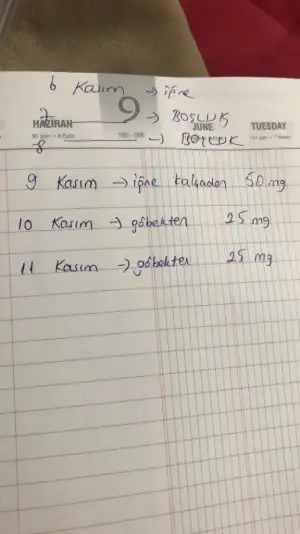 6 Kasım → iğne
7 → BOŞLUK
9
HAZİRAN JUNE TUESDAY
8 → BOŞLUK
9 Kasım → iğne kalçadan 50 mg
10 Kasım → göbekten 25 mg
11 Kasım → göbekten 25 mg